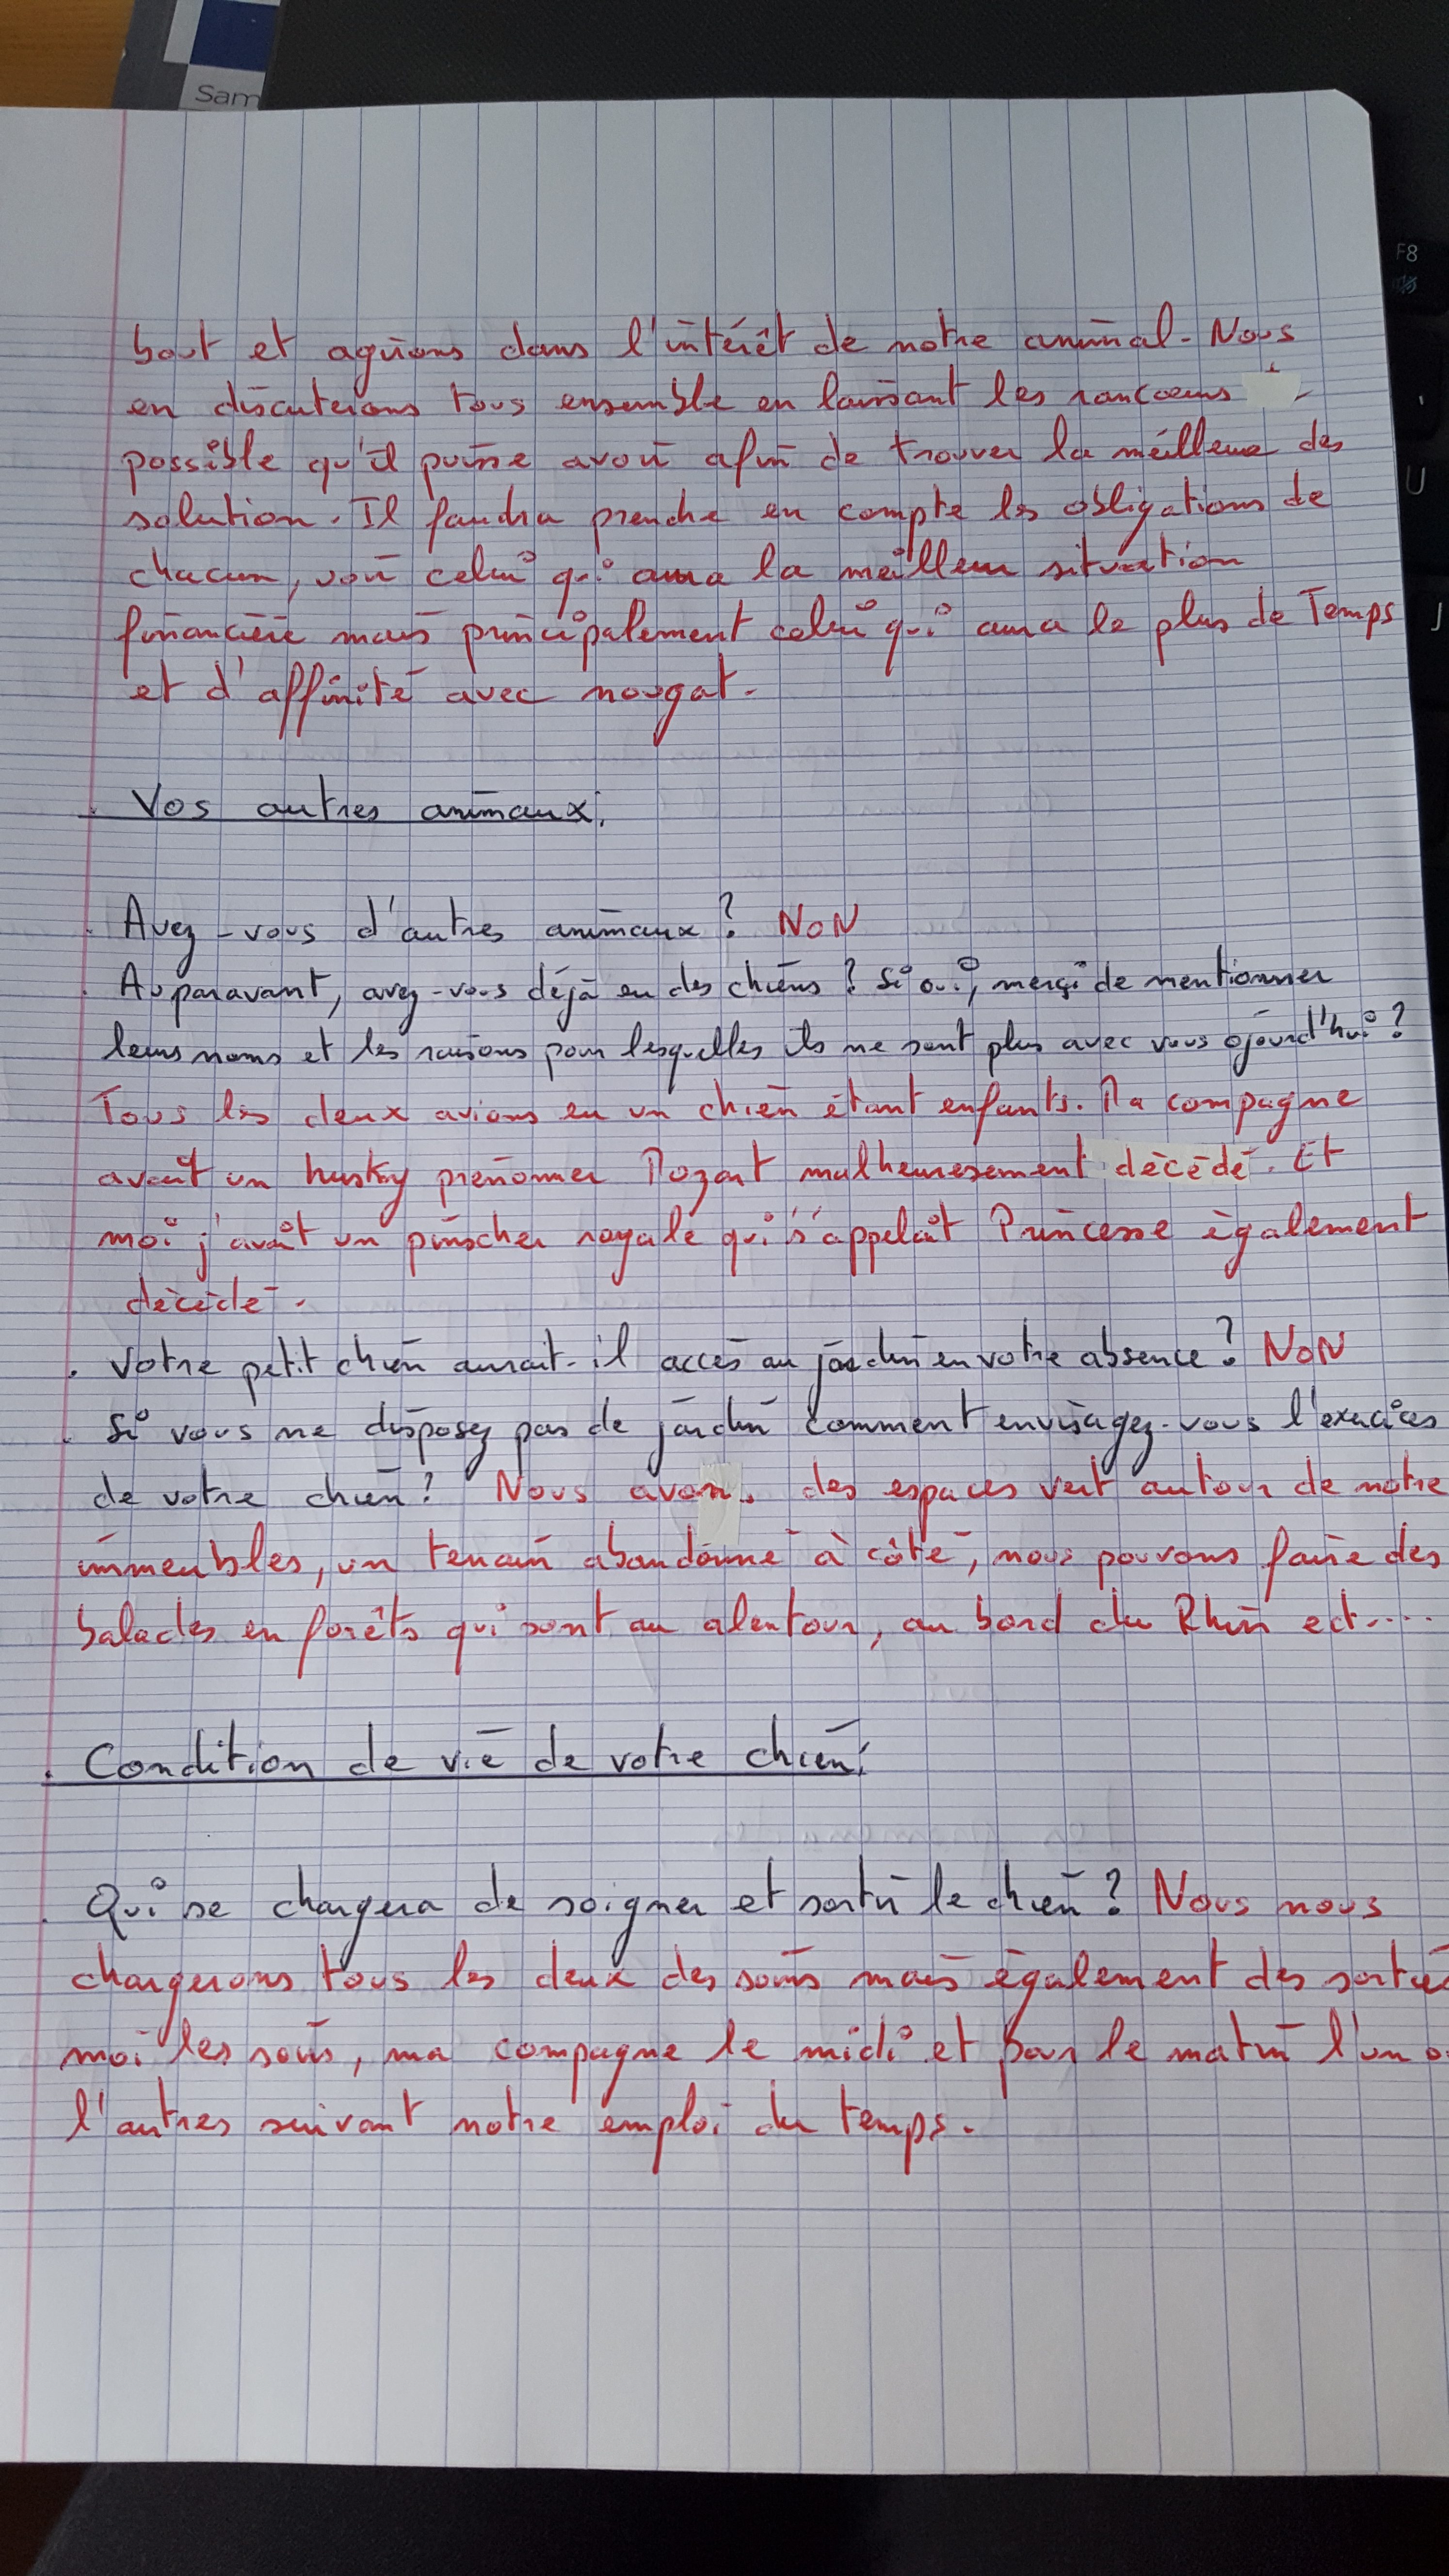 Sam
F8
U
J
bout et agirions dans l'intérêt de notre animal. Nous
en discuterions tous ensemble en laissant les rancoeurs
possible qu'il puisse avoir afin de trouver la meilleure des
solution. Il faudra prendre en compte les obligations de
chacun, voir celui qui aura la meilleur situation
financière mais principalement celui qui aura le plus de Temps
et d'affinité avec nougat.
. Vos autres animaux:
. Avez-vous d'autres animaux? NON
. Auparavant, avez-vous déjà eu des chiens? Si oui, merçi de mentionner
leurs noms et les raisons pour lesquelles ils ne sont plus avec vous ojourd'hui?
Tous les deux avions eu un chien étant enfants. Ma compagne
avait un husky prénommer Mozart malheuresement décédé. Et
moi j'avait un pinscher royale qui s'appelait Princesse également
décédé.
. Votre petit chien aurait-il accès au jardin en votre absence? NON
. Si vous ne disposez pas de jardin comment envisagez-vous l'exercices
de votre chien? Nous avons des espaces vert autour de notre
immeubles, un terrain abandonné à côté, nous pouvons faire des
balades en forêts qui sont au alentour, au bord du Rhin ect....
. Condition de vie de votre chien:
. Qui se chargera de soigner et sortir le chien? Nous nous
chargerons tous les deux des soins mais également des sorties
moi les soirs, ma compagne le midi et pour le matin l'un o
l'autres suivant notre emploi du temps.